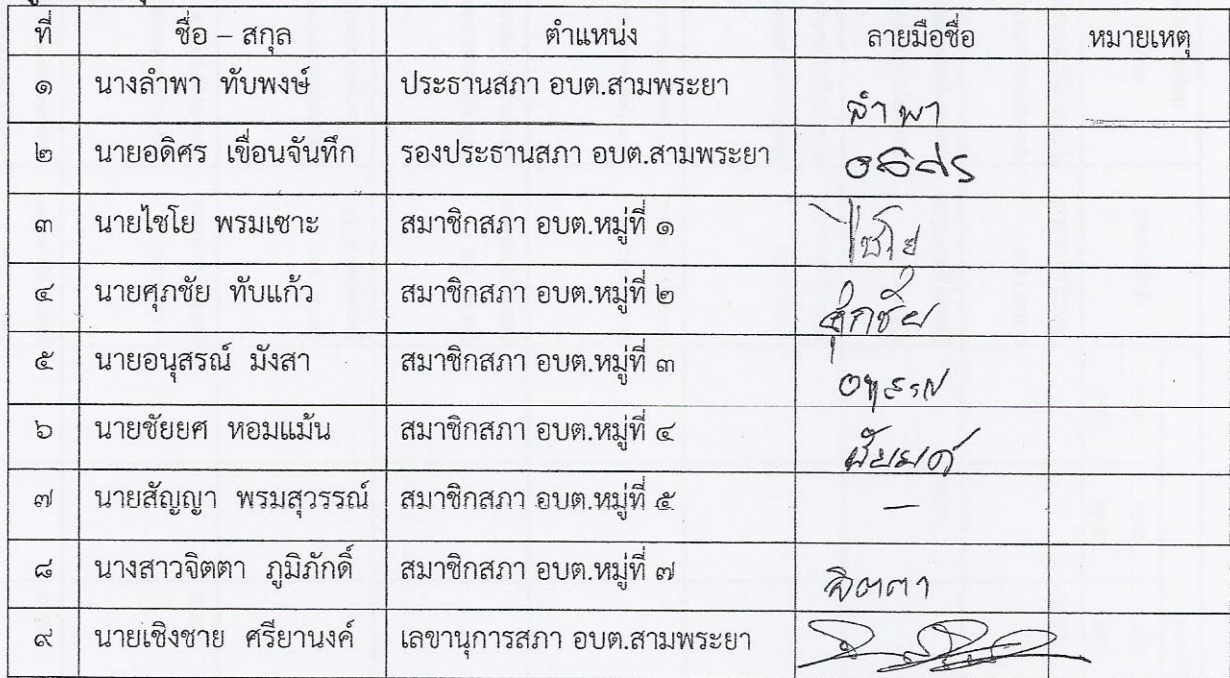 ที่ ชื่อ – สกุล ตำแหน่ง ลายมือชื่อ หมายเหตุ
๑ นางลำพา ทับพงษ์ ประธานสภา อบต.สามพระยา ลำพา
๒ นายอดิศร เขื่อนจันทึก รองประธานสภา อบต.สามพระยา อดิศร
๓ นายไชโย พรมเซาะ สมาชิกสภา อบต.หมู่ที่ ๑ ไชโย
๔ นายศุภชัย ทับแก้ว สมาชิกสภา อบต.หมู่ที่ ๒ ศุภชัย
๕ นายอนุสรณ์ มังสา สมาชิกสภา อบต.หมู่ที่ ๓
๖ นายชัยยศ หอมแม้น สมาชิกสภา อบต.หมู่ที่ ๔
๗ นายสัญญา พรมสุวรรณ์ สมาชิกสภา อบต.หมู่ที่ ๕ –
๘ นางสาวจิตตา ภูมิภักดิ์ สมาชิกสภา อบต.หมู่ที่ ๗ จิตตา
๙ นายเชิงชาย ศรียานงค์ เลขานุการสภา อบต.สามพระยา